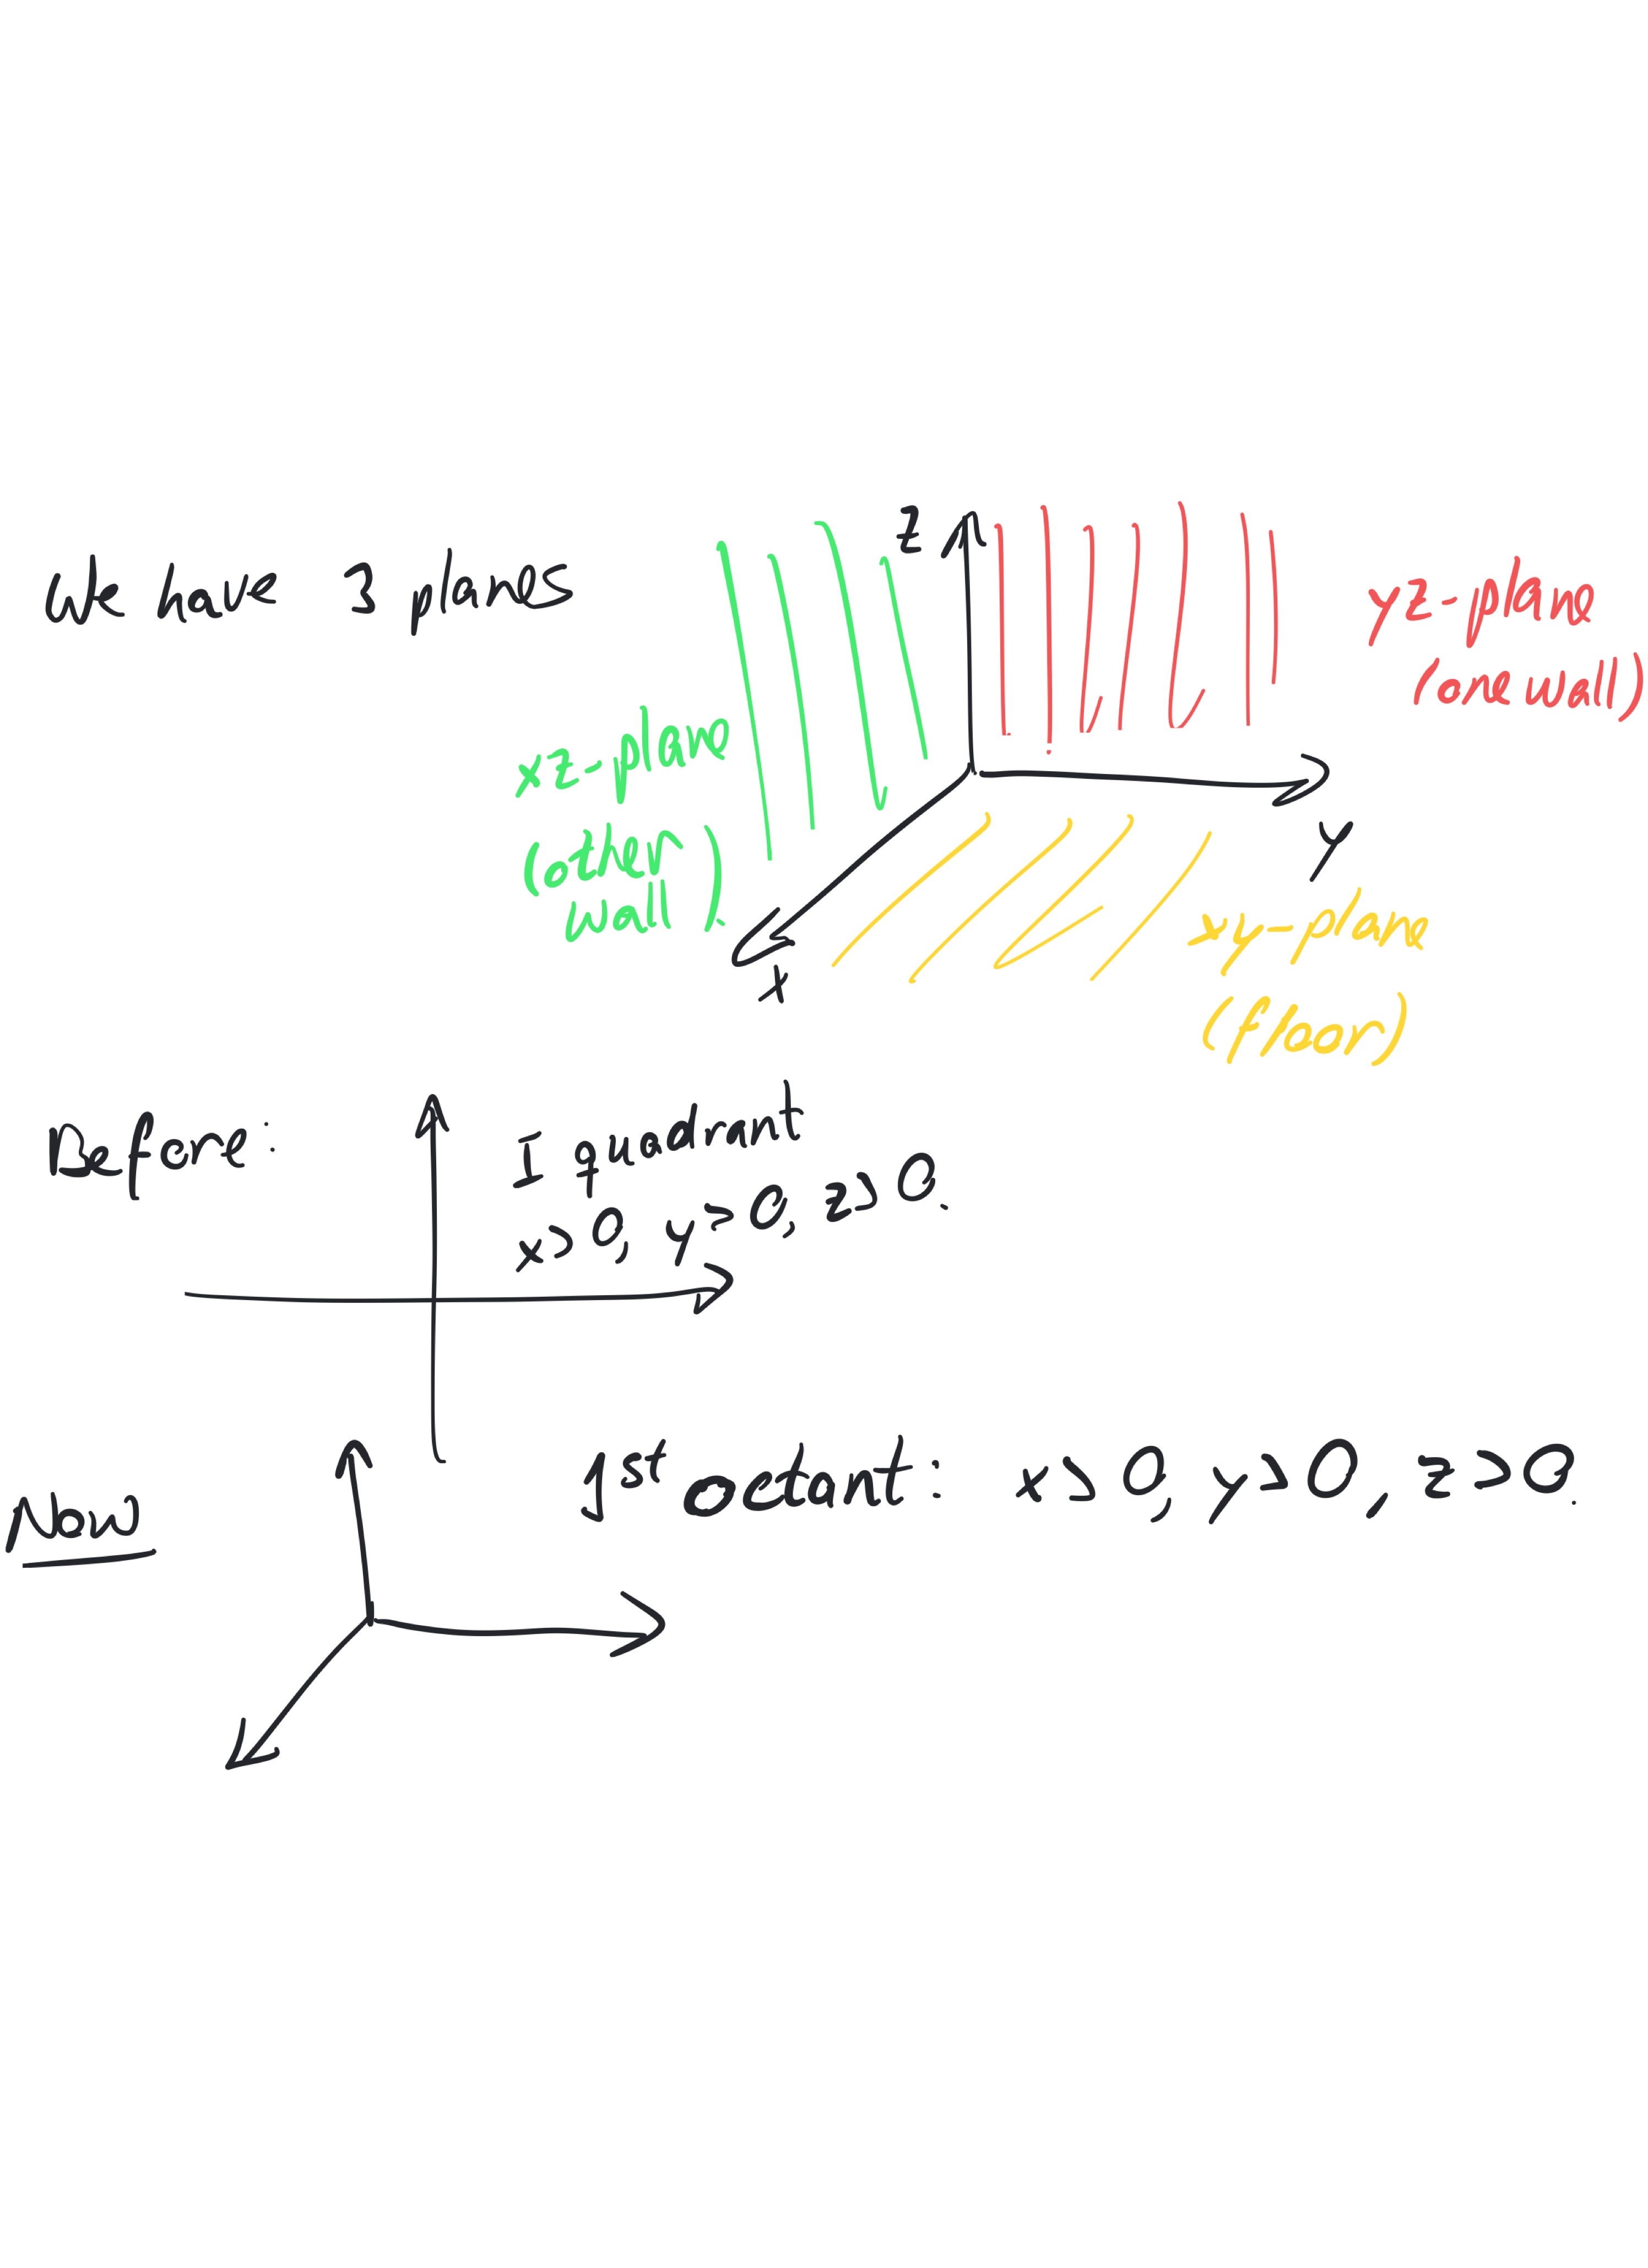 We have 3 planes
z
yz-plane
(one wall)
xz-plane
(other
wall).
y
x
xy-plane
(floor)
Before:
I quadrant
x>0, y>0, z>0.
Now
1st octant: x>0, y>0, z>0.